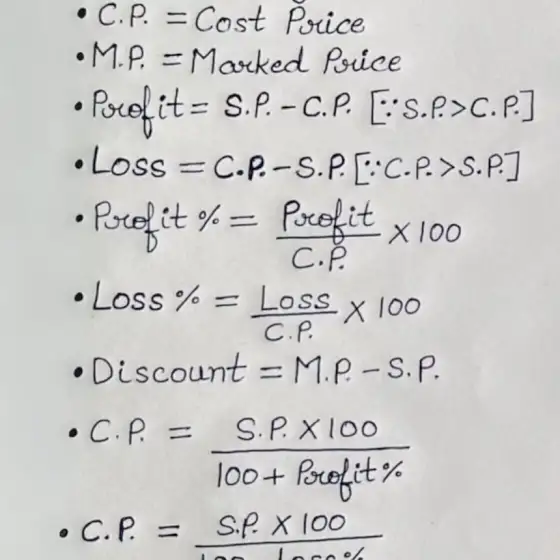 • C.P. = Cost Price
• M.P. = Marked Price
• Profit = S.P. - C.P. [∵ S.P. > C.P.]
• Loss = C.P. - S.P. [∵ C.P. > S.P.]
• Profit % = Profit / C.P. × 100
• Loss % = Loss / C.P. × 100
• Discount = M.P. - S.P.
• C.P. = S.P. × 100 / 100 + Profit %
• C.P. = S.P. × 100 / 100 - Loss %